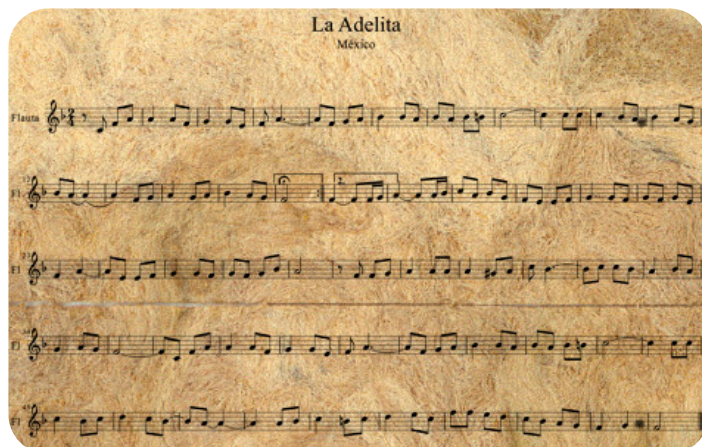 La Adelita
México
Flauta
Fl
Fl
Fl
Fl